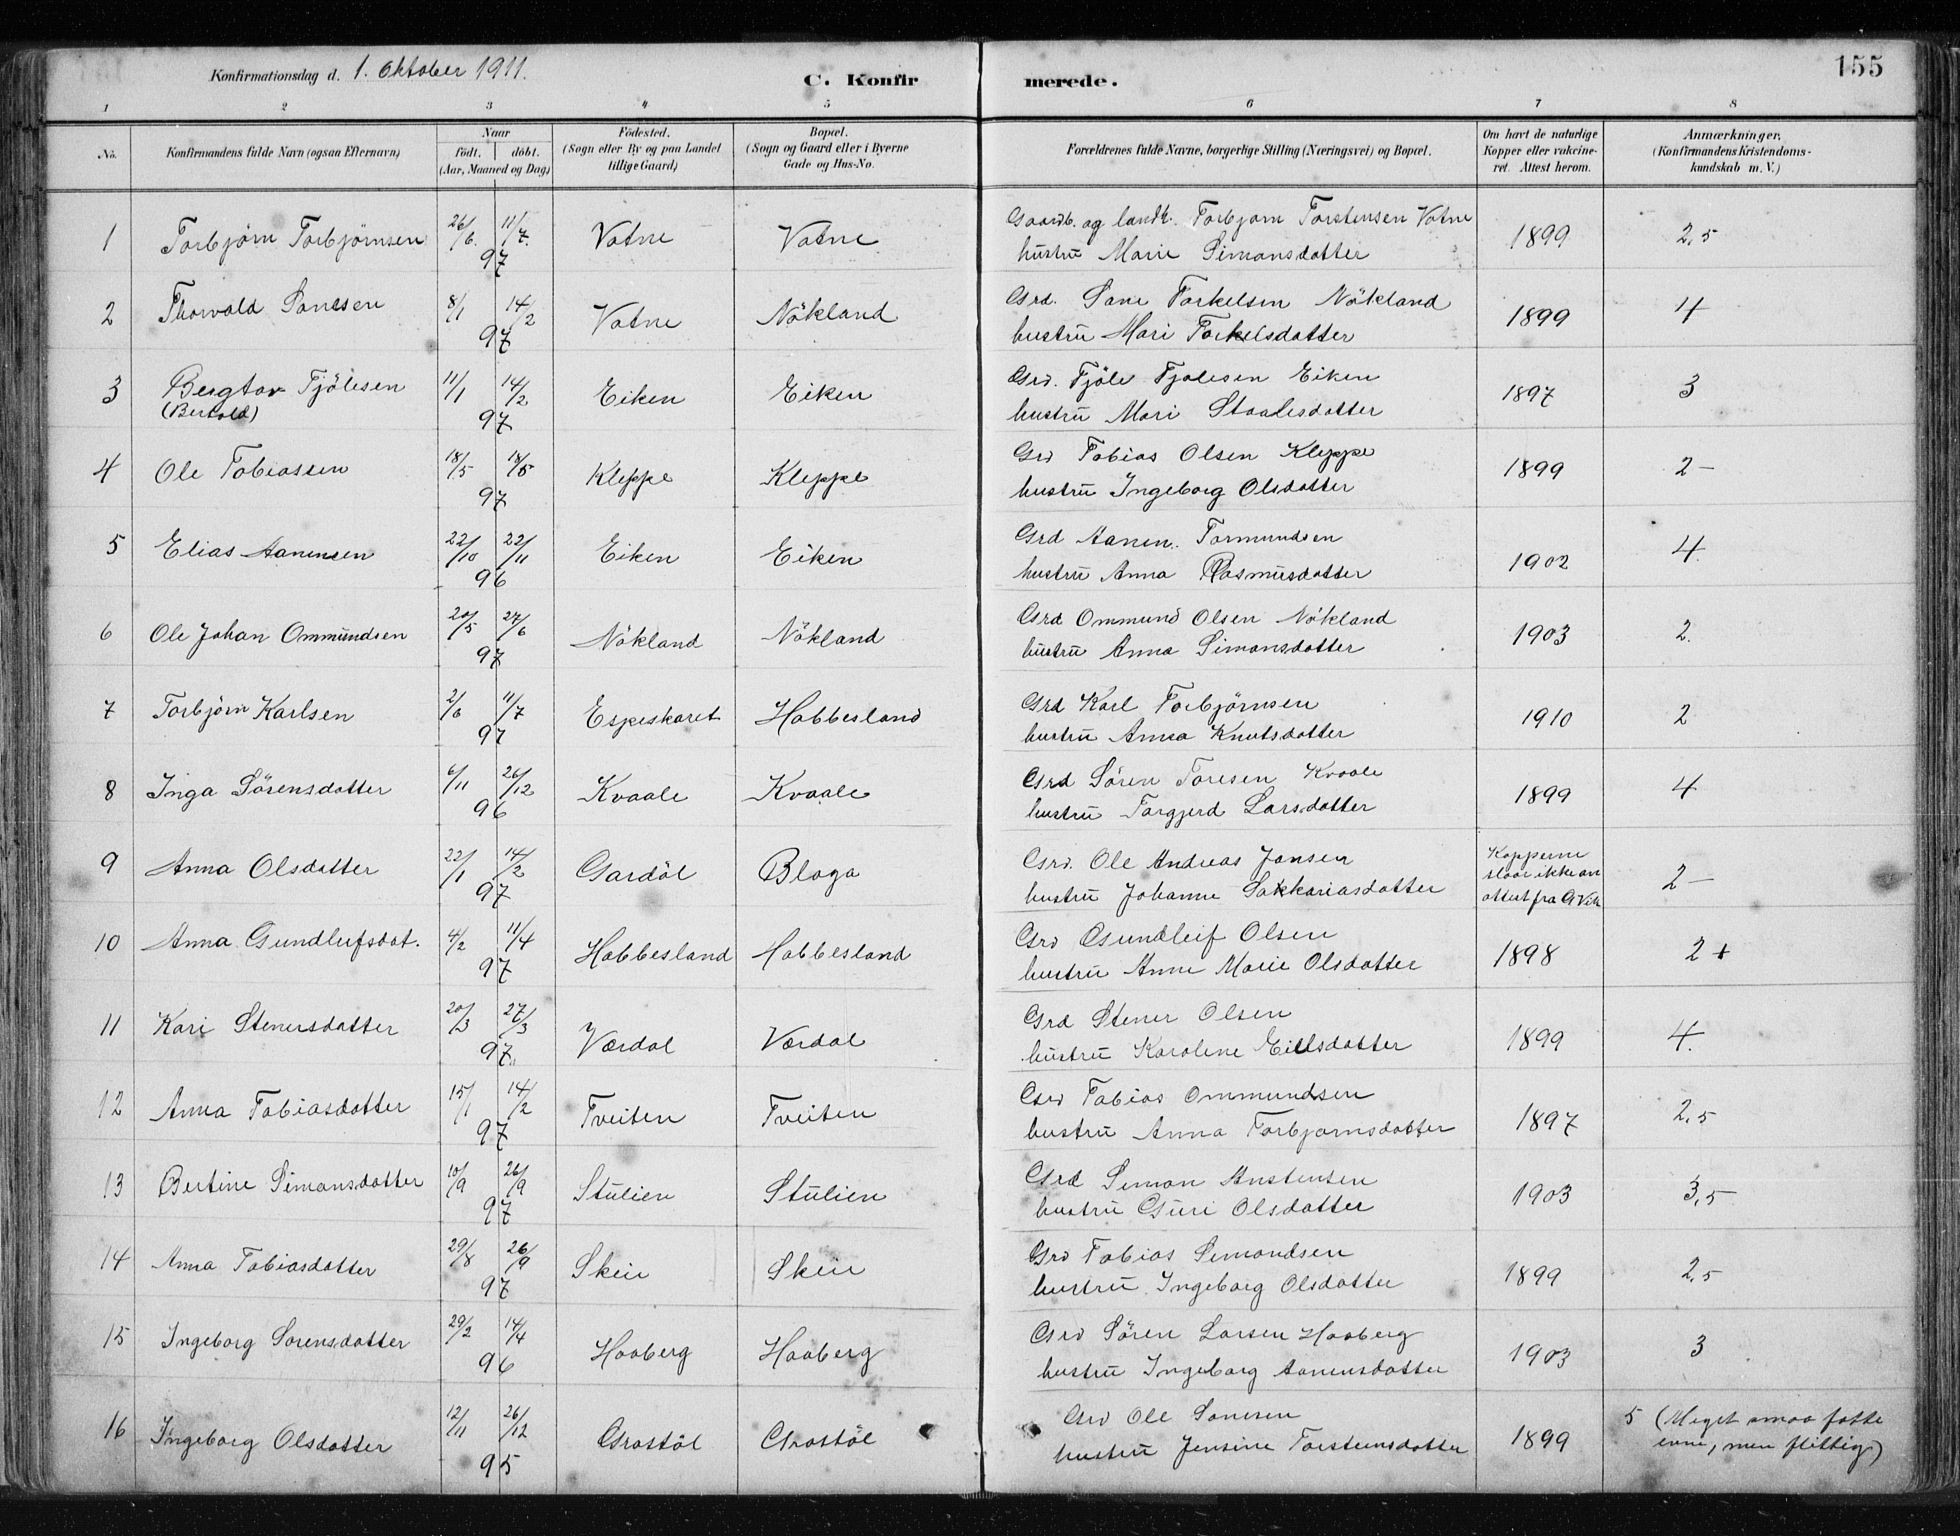 Konfirmationsdag d. 1. Oktober 1911.
C. Konfirmerede.
155
1 2 3 4 5 6 7 8
No.
Konfirmandens fulde Navn (ogsaa Efternavn)
Naar
födt. döbt.
(Aar, Maaned og Dag)
Födested.
(Sogn eller By og paa Landet
tillige Gaard)
Bopæl.
(Sogn og Gaard eller i Byerne
Gade og Hus-No.
Forældrenes fulde Navne, borgerlige Stilling (Næringsvei) og Bopæl.
Om havt de naturlige
Kopper eller vakcine-
ret. Attest herom.
Anmærkninger.
(Konfirmandens Kristendoms-
kundskab m. V.)
1 Torbjörn Torbjörnsen 26/6. 11/7. 97 Votne Votne Gaardb. og landh. Torbjørn Torstensen Votne
hustru Marie Simonsdatter 1899 2,5
2 Thorvald Sanesen 8/1 14/2 97 Votne Nökland Grd. Sane Torkelsen Nökland
hustru Mari Torkelsdatter 1899 4
3 Bergtor Tjölesen 11/1 14/2 97 Eiken Eiken Grd. Tjöle Tjölesen Eiken
(Bertold) hustru Mari Staalesdatter 1897 3
4 Ole Tobiassen 18/5 18/6 97 Kleppe Kleppe Grd Tobias Olsen Kleppe
hustru Ingeborg Olsdatter 1899 2-
5 Elias Aanensen 22/10 22/11 96 Eiken Eiken Grd Aanen Tormundsen
hustru Anna Rasmusdatter 1902 4.
6 Ole Johan Ommundsen 20/5 27/6 97 Nökland Nökland Grd Ommund Olsen Nökland
hustru Anna Simonsdatter 1903 2.
7 Torbjörn Karlsen 2/6 11/7 97 Espeskaret Habbesland Grd Karl Torbjörnsen
hustru Anna Knutsdatter 1910 2
8 Inga Sörensdatter 6/11 26/12 96 Kvaale Kvaale Grd Sören Toresen Kvaale
hustru Torgjerd Larsdatter 1899 4
9 Anna Olsdatter 22/1 14/2 97 Gardöl Blaga Grd. Ole Andreas Jansen
hustru Johanne Sakkariasdatter Kopperne
staar ikke an
attest fra G Vik 2-
10 Anna Gundleifsdat. 4/2 11/4 97 Habbesland Habbesland Grd Gundleif Olsen
hustru Anne Marie Olsdatter 1898 2+
11 Kari Stenersdatter 20/3 27/3 97. Værdal Værdal Grd Stener Olsen
hustru Karoline Eilifsdatter 1899 4.
12 Anna Tobiasdatter 15/1 14/2 97 Tveiten Tveiten Grd Tobias Ommundsen
hustru Anna Torbjørnsdatter 1897 2,5
13 Bertine Simonsdatter 10/9 26/9 97 Stulien Stulien Grd Simon Anstensen
hustru Guri Olsdatter 1903 3,5
14 Anna Tobiasdatter 29/8 26/9 97 Skeie Skeie Grd Tobias Simondsen
hustru Ingeborg Olsdatter 1899 2,5
15 Ingeborg Sorensdatter 29/2 14/4 96 Haaberg Haaberg Grd Sören Larsen Haaberg
hustru Ingeborg Aanensdatter 1903 3
16 Ingeborg Olsdatter 12/11 26/12 95 Grostöl Grostöl Grd Ole Sanesen
hustru Jensine Torsteinsdatter 1899 5 (Meget smaa fatte
evne, men flittig)